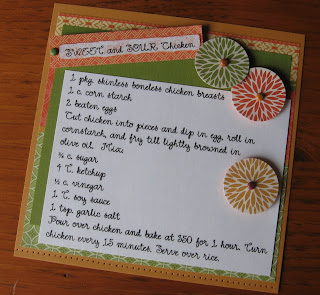 SWEET and SOUR Chicken
1 pkg. skinless boneless chicken breasts
1 c. corn starch
2 beaten eggs
Cut chicken into pieces and dip in egg, roll in
cornstarch, and fry till lightly browned in
olive oil. Mix:
¾ c. sugar
4 T. ketchup
½ c. vinegar
1 T. soy sauce
1 tsp. garlic salt
Pour over chicken and bake at 350 for 1 hour. Turn
chicken every 15 minutes. Serve over rice.